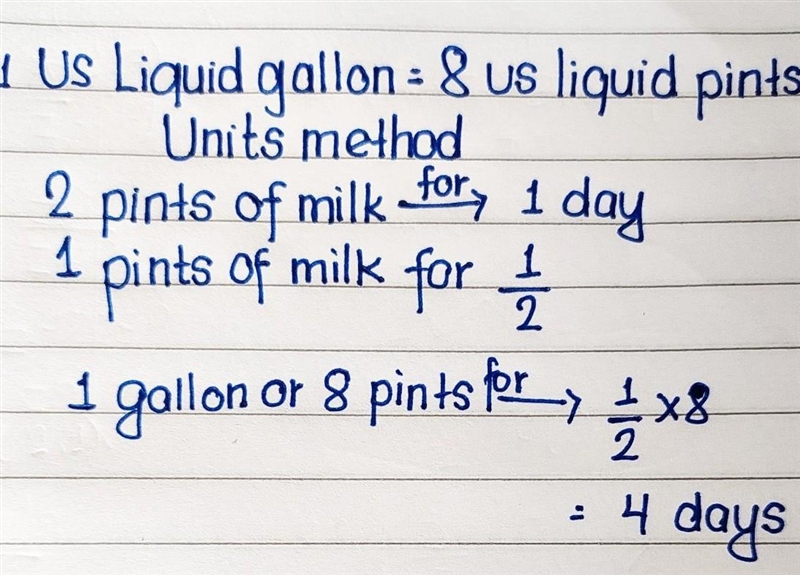 1 US Liquid gallon = 8 us liquid pints
Units method
2 pints of milk for → 1 day
1 pints of milk for 1/2
1 gallon or 8 pints for → 1/2 × 8
= 4 days